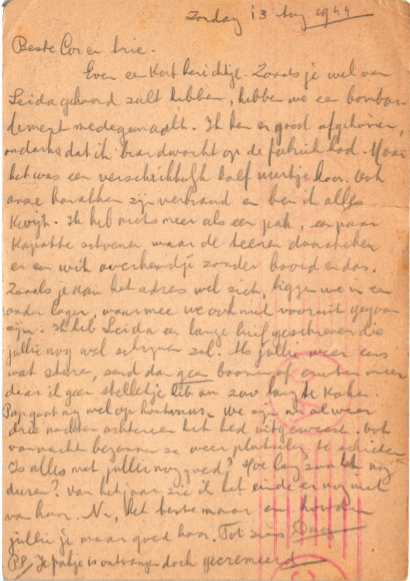 Zondag 13 Aug 1944
Beste Cor en Trie.
Even een kort berichtje. Zooals je wel van
Leida gehoord zult hebben, hebben we een bombar-
dement medegemaakt. Ik ben er goed afgekomen,
ondanks dat ik brandwacht op de fabriek had. Maar
het was een verschrikkelijk half uurtje hoor. Ook
onze barakken zijn verbrand en ben ik alles
kwijt. Ik heb niets meer als een pak, een paar
kapotte schoenen waar de teenen doorsteken
en een wit overhemdje zonder boord en das.
Zooals je aan het adres wel ziet, liggen we in een
ander lager, waarmee we ook niet vooruit gegaan
zijn. Ik heb Leida een lange brief geschreven die
jullie nog wel schrijven zal. Als jullie weer eens
wat sturen, send dan geen boonen of erwten meer
daar ik geen stelletje heb om zoo lang te koken.
Pap gaat nog wel op houtvuur. We zijn nu al weer
drie nachten achtereen het bed uitgeweest. Ook
vannacht begonnen ze weer plotseling te schieten
Is alles met jullie nog goed? Hoe lang zou het nog
duren? Van het jaar zie ik het einde er nog niet
van hoor. Nu, het beste maar en houden
jullie je maar goed hoor. Tot ziens
PS/ Je pakje is ontvangen doch gecremeerd